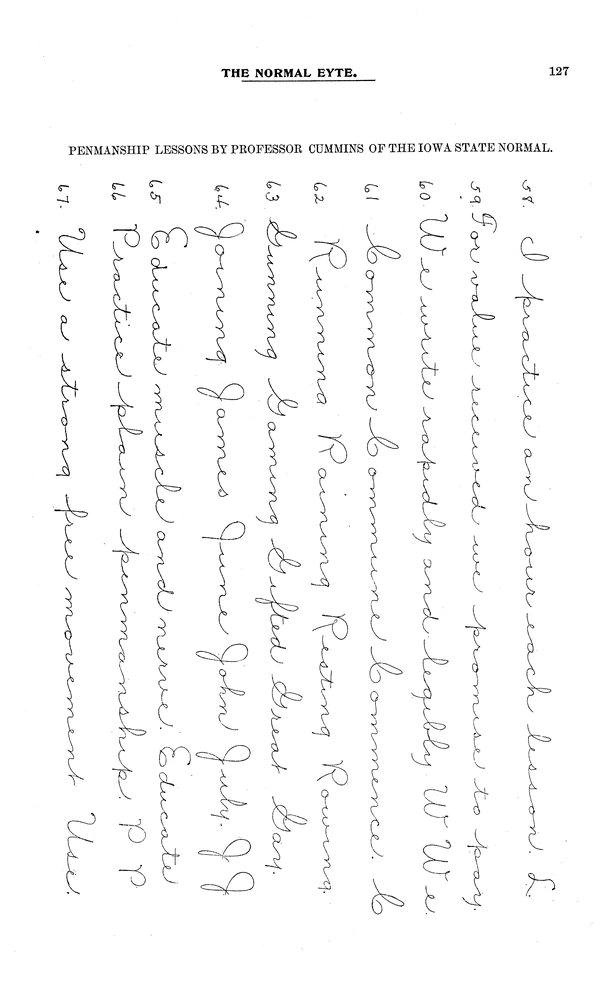 THE NORMAL EYTE.
127
PENMANSHIP LESSONS BY PROFESSOR CUMMINS OF THE IOWA STATE NORMAL.
58. I practice an hour each lesson. L.
59. For value received we promise to pay.
60. We write rapidly and legibly W W e.
61 Common Commune Commence. C
62 Running Raining Resting Rowing.
63 Gunning Gaming Gifted Great Gay.
64. Joining James June John July. J J
65 Educate muscle and nerve. Educate
66 Practice plain penmanship. P P
67. Use a strong free movement Use.